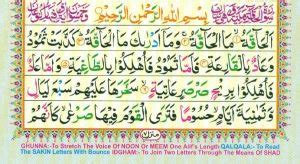 بِسْمِ اللّٰهِ الرَّحْمٰنِ الرَّحِيْمِ
اَلْحَآقَّةُ ۙ مَا الْحَآقَّةُ ۚ وَمَآ اَدْرٰىكَ مَا الْحَآقَّةُ ؕ كَذَّبَتْ ثَمُوْدُ
وَعَادٌۢ بِالْقَارِعَةِ فَاَمَّا ثَمُوْدُ فَاُهْلِكُوْا بِالطَّاغِيَةِ وَاَمَّا عَادٌ
فَاُهْلِكُوْا بِرِيْحٍ صَرْصَرٍ عَاتِيَةٍ سَخَّرَهَا عَلَيْهِمْ سَبْعَ لَيَالٍ
وَّثَمٰنِيَةَ اَيَّامٍ حُسُوْمًا فَتَرَى الْقَوْمَ فِيْهَا صَرْعٰى كَاَنَّهُمْ
منزل
GHUNNA:-To Stretch The Voice Of NOON Or MEEM One Alif's Length QALQALA:- To Read
The SAKIN Letters With Bounce IDGHAM:- To Join Two Letters Through The Means Of SHAD